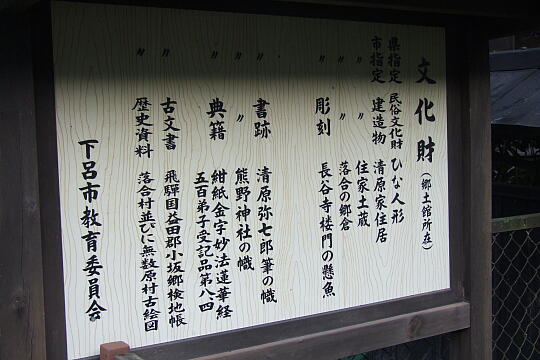 文化財（郷土館所在）
県指定 民俗文化財 ひな人形
市指定 建造物 清原家住居
〃 〃 住家土蔵
〃 〃 落合の郷倉
〃 彫刻 長谷寺楼門の懸魚
〃 書跡 清原弥七郎筆の幟
〃 〃 熊野神社の幟
〃 典籍 紺紙金字妙法蓮華経
五百弟子受記品第八四
〃 古文書 飛騨国益田郡小坂郷検地帳
〃 歴史資料 落合村並びに無数原村古絵図
下呂市教育委員会